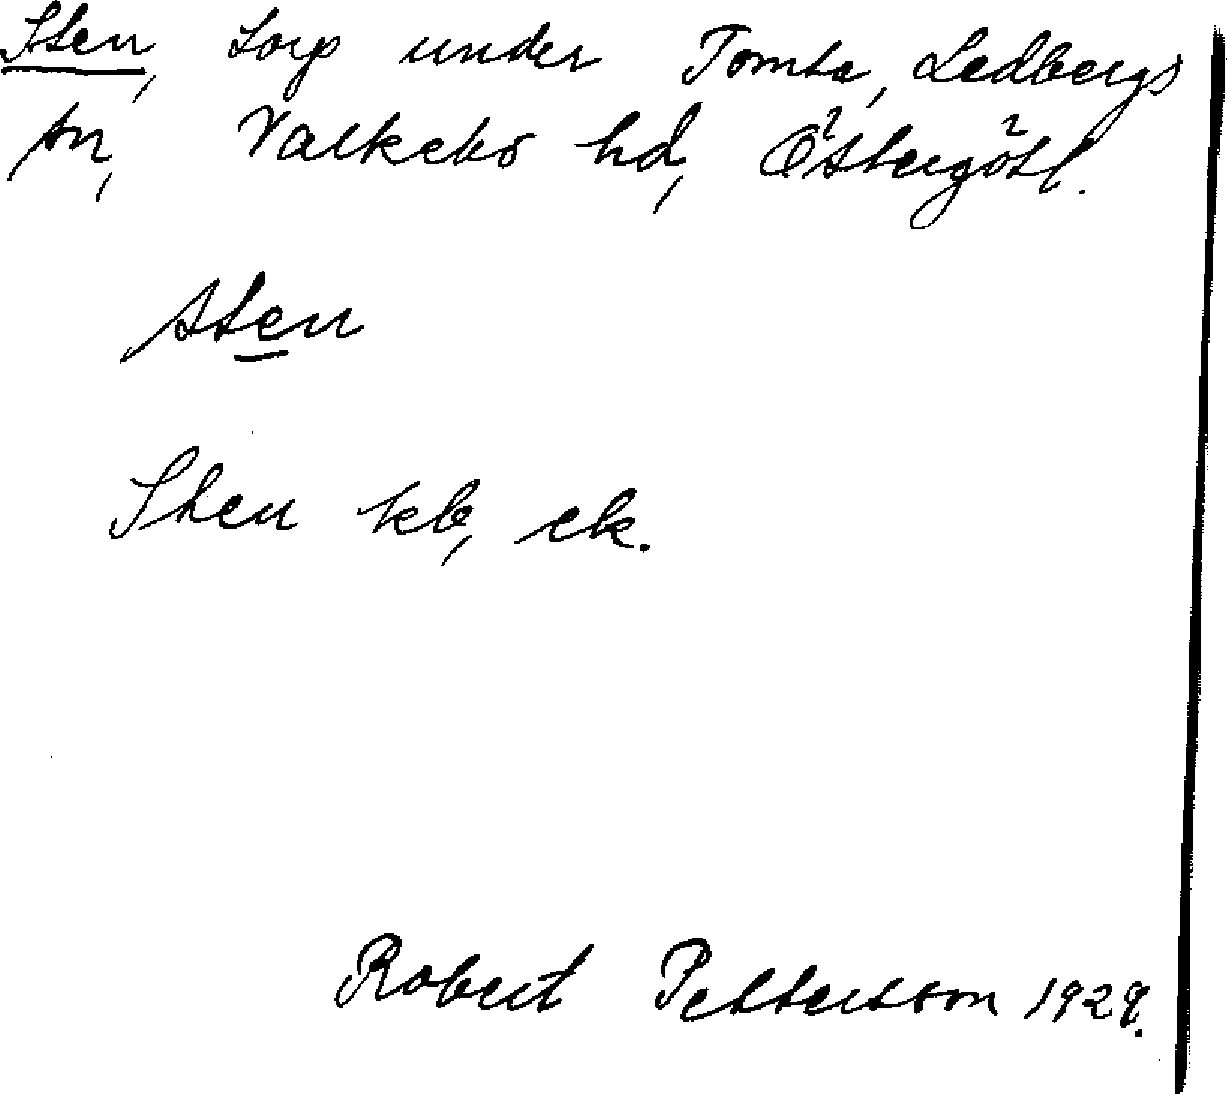 Sten, torp under Tomta, Ledbergs
sn, Valkebo hd, Östergötl.
sten
Sten kb, ek.
Robert Pettersson 1929.